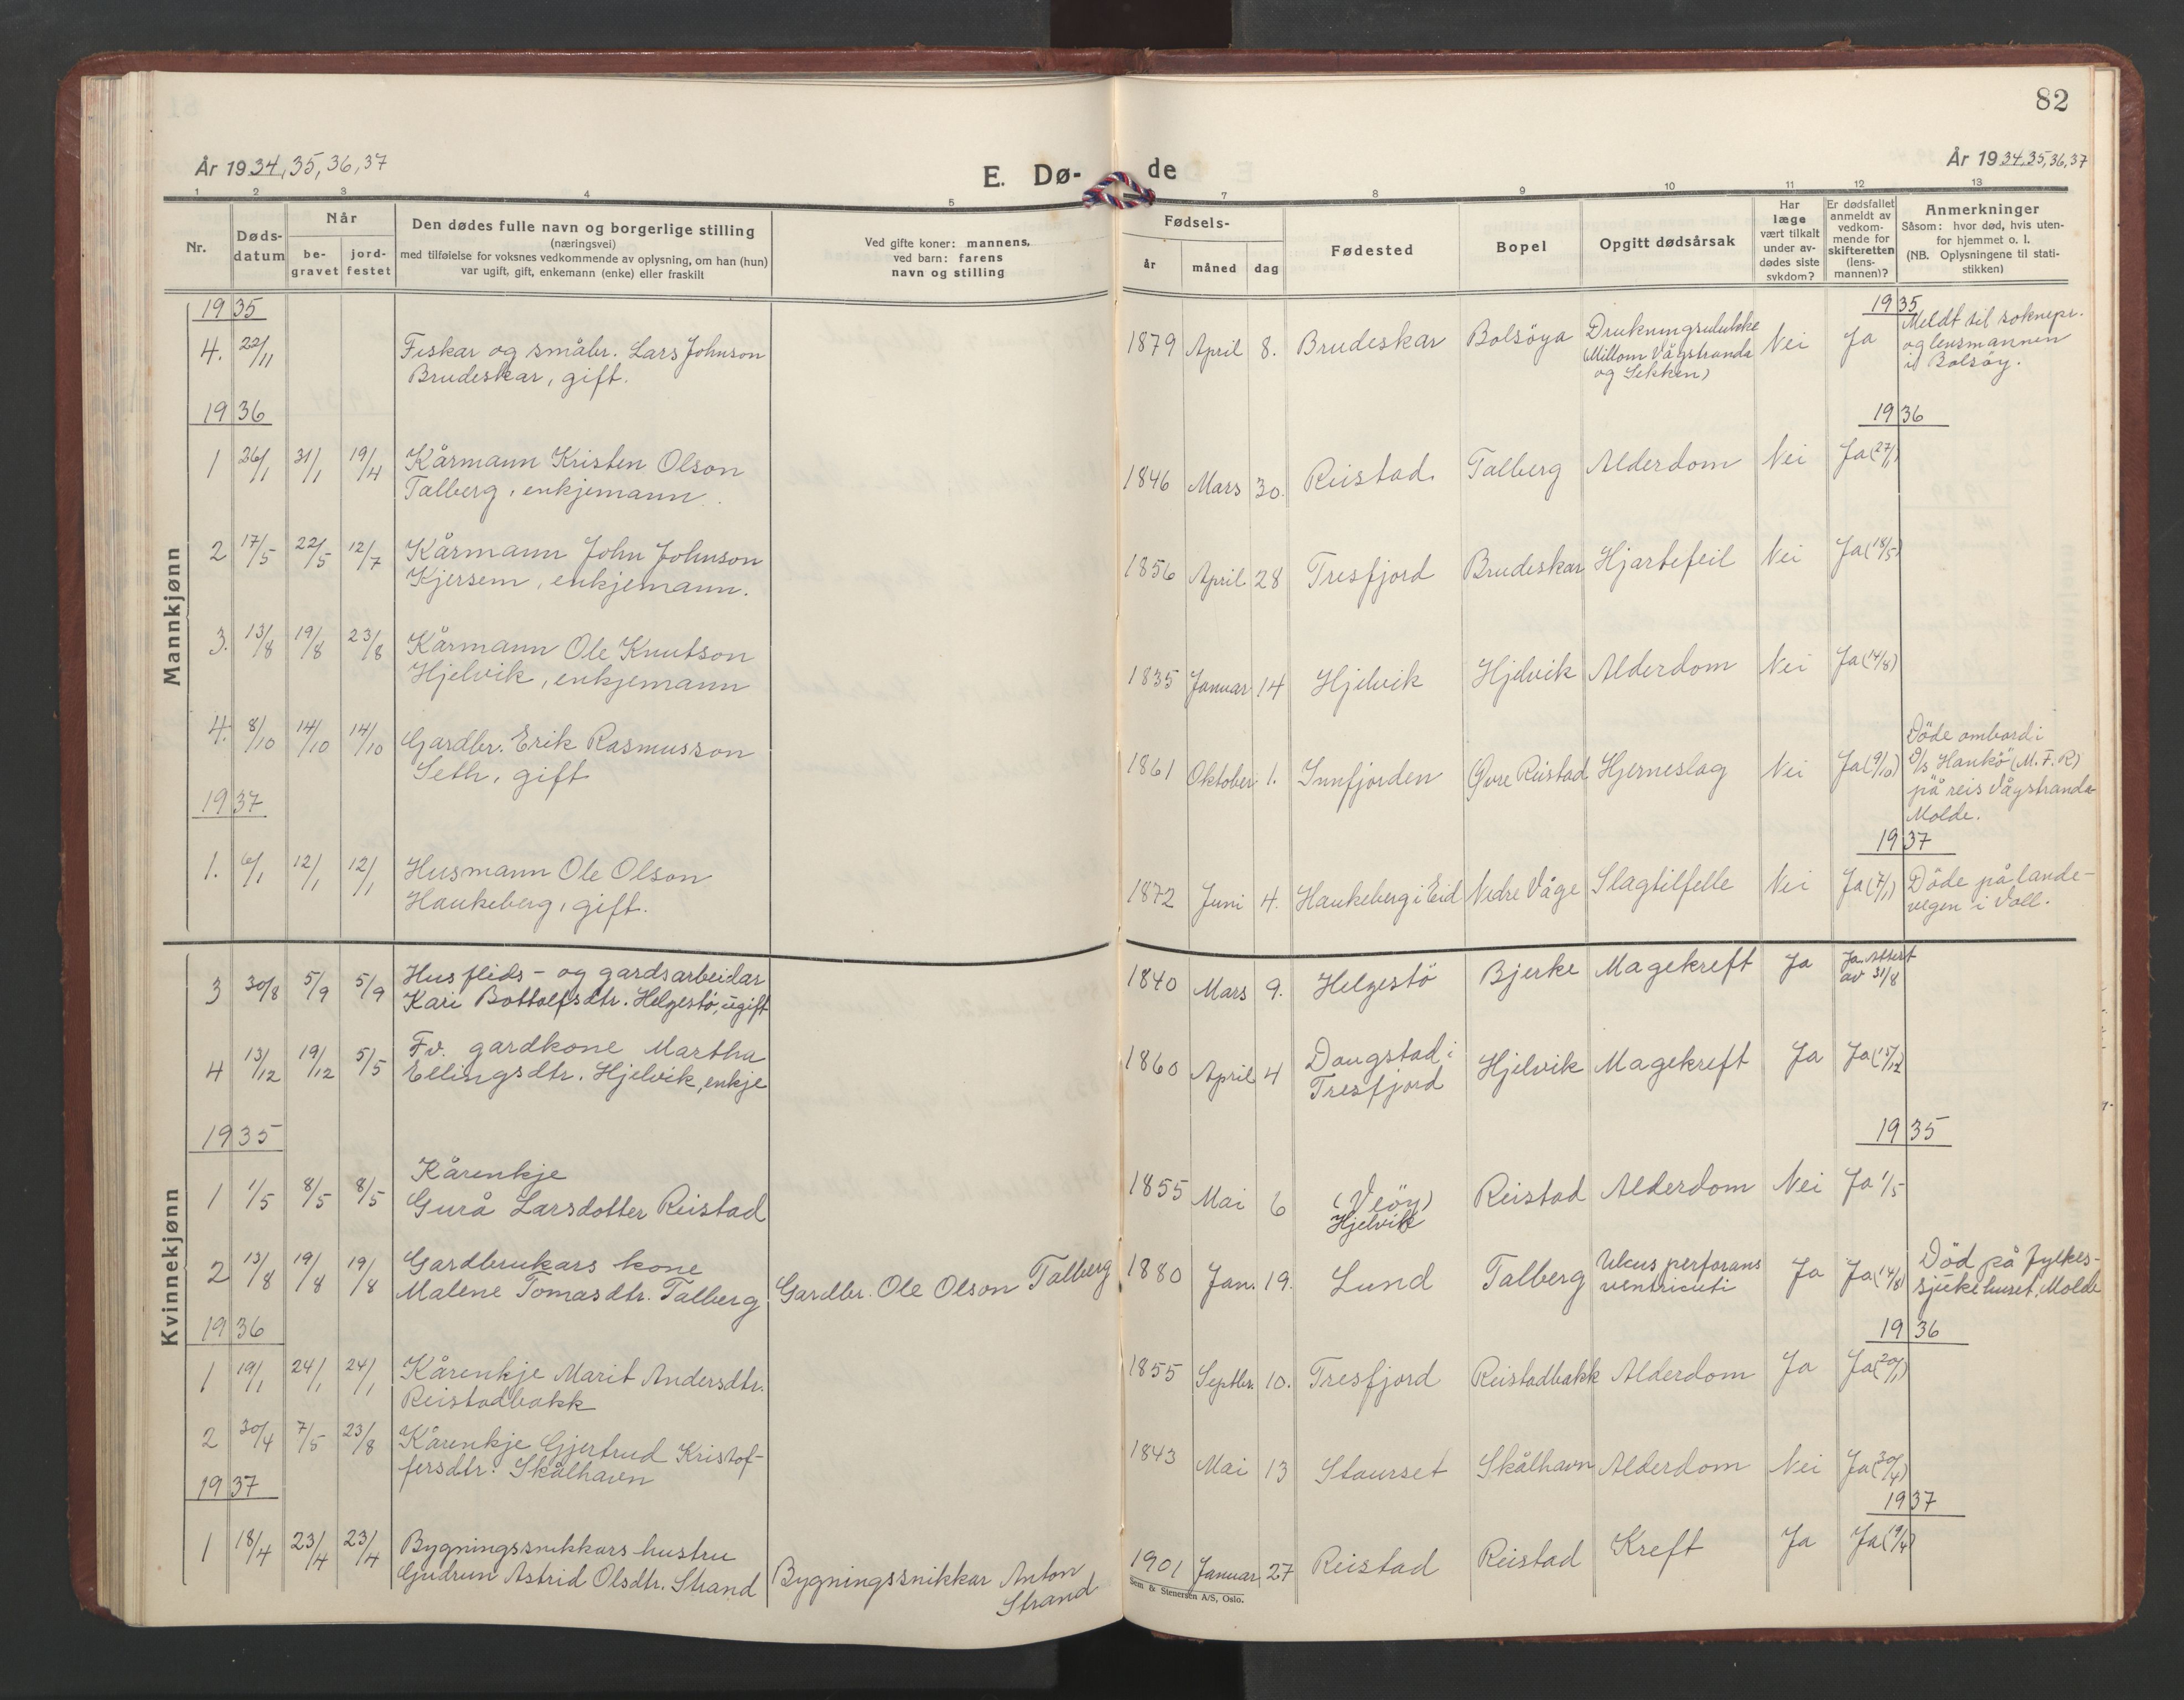 82
År 1934, 35, 36, 37
E. Dø-
de
År 1934, 35, 36, 37
1 2 3 4 5 7 8 9 10 11 12 13
Nr.
Døds-
datum
Når
be-
gravet
jord-
festet
Den dødes fulle navn og borgerlige stilling
(næringsvei)
med tilføielse for voksnes vedkommende av oplysning, om han (hun)
var ugift, gift, enkemann (enke) eller fraskilt
Ved gifte koner: mannens,
ved barn: farens
navn og stilling
Fødsels-
år
måned
dag
Fødested
Bopel
Opgitt dødsårsak
Har
læge
vært tilkalt
under av-
dødes siste
sykdom?
Er dødsfallet
anmeldt av
vedkom-
mende for
skifteretten
(lens-
mannen)?
Anmerkninger
Såsom: hvor død, hvis uten-
for hjemmet o. l.
(NB. Oplysningene til stati-
stikken)
Mannkjønn
1935
1935
4. 22/11 Fiskar og småbr. Lars Johnson
Brudeskar, gift.
1879 April 8. Brudeskar Bolsöya Drukningsulukke
(Millom Vågstranda
og Sekken)
Nei Ja
Meldt til soknepr.
og lensmannen
i Bolsöy.
1936
1936
1 26/1 31/1 19/4 Kårmann Kristen Olson
Talberg, enkjemann.
1846 Mars 30. Reistad. Talberg Alderdom Nei Ja (27/1)
2 17/5 22/5 12/7 Kårmann John Johnson
Kjersem, enkjemann.
1856 April 28 Tresfjord Brudeskar Hjartefeil Nei Ja (18/5)
3. 13/8 19/8 23/8 Kårmann Ole Knutson
Hjelvik, enkjemann
1835 Januar 14 Hjelvik Hjelvik Alderdom Nei Ja (14/8)
4. 8/10 14/10 14/10 Gardbr. Erik Rasmusson
Seth, gift
1861 Oktober 1. Innfjorden Øvre Reistad Hjerneslag Nei Ja (9/10)
Döde ombord i
D/s "Hankö" (M.F.R)
på reis Vågstranda-
Molde.
1937
1937
1. 6/1 12/1 12/1 Husmann Ole Olson
Haukeberg, gift.
1872 Juni 4. Haukeberg i Eid Nedre Våge Slagtilfelle Nei Ja (7/1)
Döde på lande-
vegen i Voll.
Kvinnekjønn
3 30/8 5/9 5/9 Husflids- og gardsarbeidar
Kari Bottolfsdtr. Helgestö, ugift
1840 Mars 9. Helgestö Bjerke Magekreft Ja Ja. Attest
av 31/8
4 13/12 19/12 5/5 Fv. gardkone Martha
Ellingsdtr. Hjelvik, enkje
1860 April 4 Daugstad i
Tresfjord
Hjelvik Magekreft Ja Ja (15/12)
1935
1935
1 1/5 8/5 8/5 Kårenkje
Gurå Larsdotter Reistad
1855 Mai 6 (Veöy)
Hjelvik
Reistad Alderdom Nei Ja 1/5
2 13/8 19/8 19/8 Gardbrukars kone
Malene Tomasdtr. Talberg
Gardbr. Ole Olson Talberg
1880 Jan. 19. Lund Talberg Ulcus perforans
ventricuti
Ja Ja (14/8)
Död på fylkes-
sjukehuset, Molde
1936
1936
1 19/1 24/1 24/1 Kårenkje Marit Andersdtr.
Reistadbakk
1855 Septbr. 10. Tresfjord Reistadbakk Alderdom Ja Ja (20/1)
2 30/4 7/5 23/8 Kårenkje Gjertrud Kristof-
fersdtr. Skålhavn
1843 Mai 13 Staurset Skålhavn Alderdom Nei Ja (30/4)
1937
1937
1 18/4 23/4 23/4 Bygningssnikkars hustru
Gudrun Astrid Olsdtr. Strand
Bygningssnikkar Anton
Strand
1901 Januar 27 Reistad Reistad Kreft Ja Ja (19/4)
Sem & Stenersen A/S, Oslo.